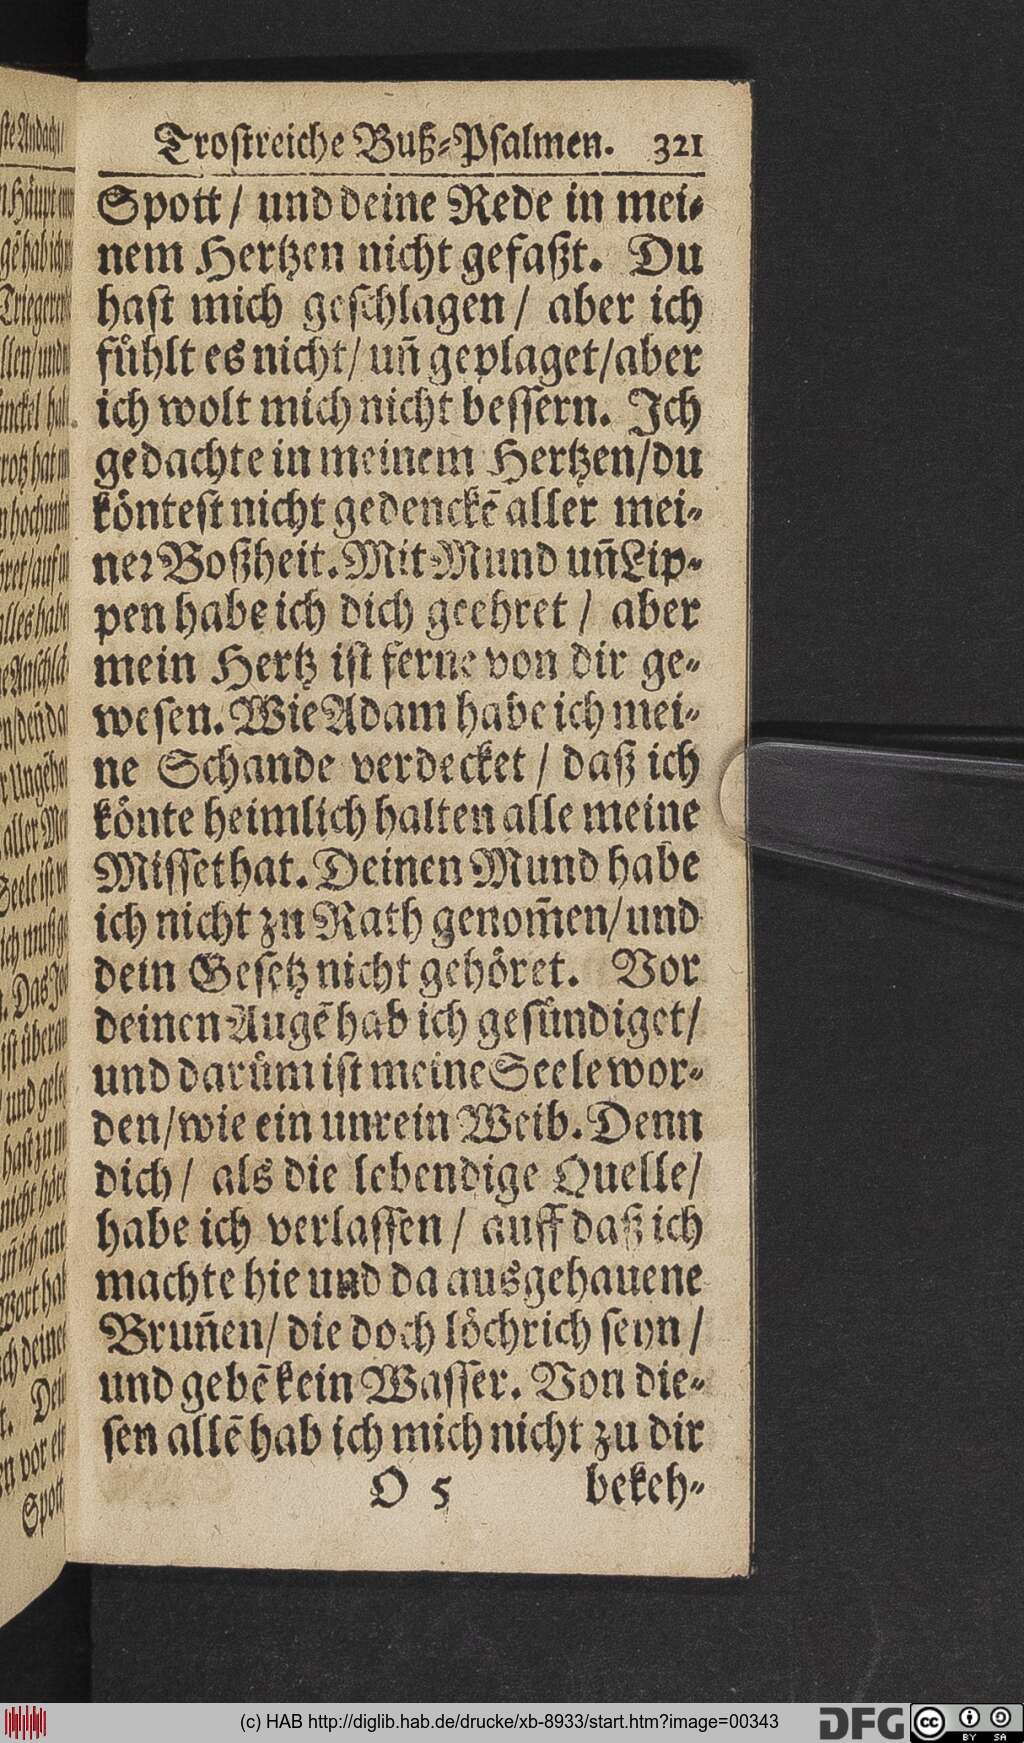 Trostreiche Buß-Psalmen. 321
Spott / und deine Rede in mei-
nem Hertzen nicht gefaßt. Du
hast mich geschlagen / aber ich
fuͤhlt es nicht / uñ geplaget / aber
ich wolt mich nicht bessern. Ich
gedachte in meinem Hertzen / du
koͤntest nicht gedenckẽ aller mei-
ner Boßheit. Mit Mund uñ Lip-
pen habe ich dich geehret / aber
mein Hertz ist ferne von dir ge-
wesen. Wie Adam habe ich mei-
ne Schande verdecket / daß ich
koͤnte heimlich halten alle meine
Missethat. Deinen Mund habe
ich nicht zu Rath genom̃en / und
dein Gesetz nicht gehoͤret. Vor
deinen Augẽ hab ich gesuͤndiget /
und daruͤm ist meine Seele wor-
den / wie ein unrein Weib. Denn
dich / als die lebendige Quelle /
habe ich verlassen / auff daß ich
machte hie und da ausgehauene
Bruñen / die doch loͤchrich seyn /
und gebẽ kein Wasser. Von die-
sen allẽ hab ich mich nicht zu dir
O 5 bekeh-
(c) HAB http://diglib.hab.de/drucke/xb-8933/start.htm?image=00343
DFG
CC BY SA